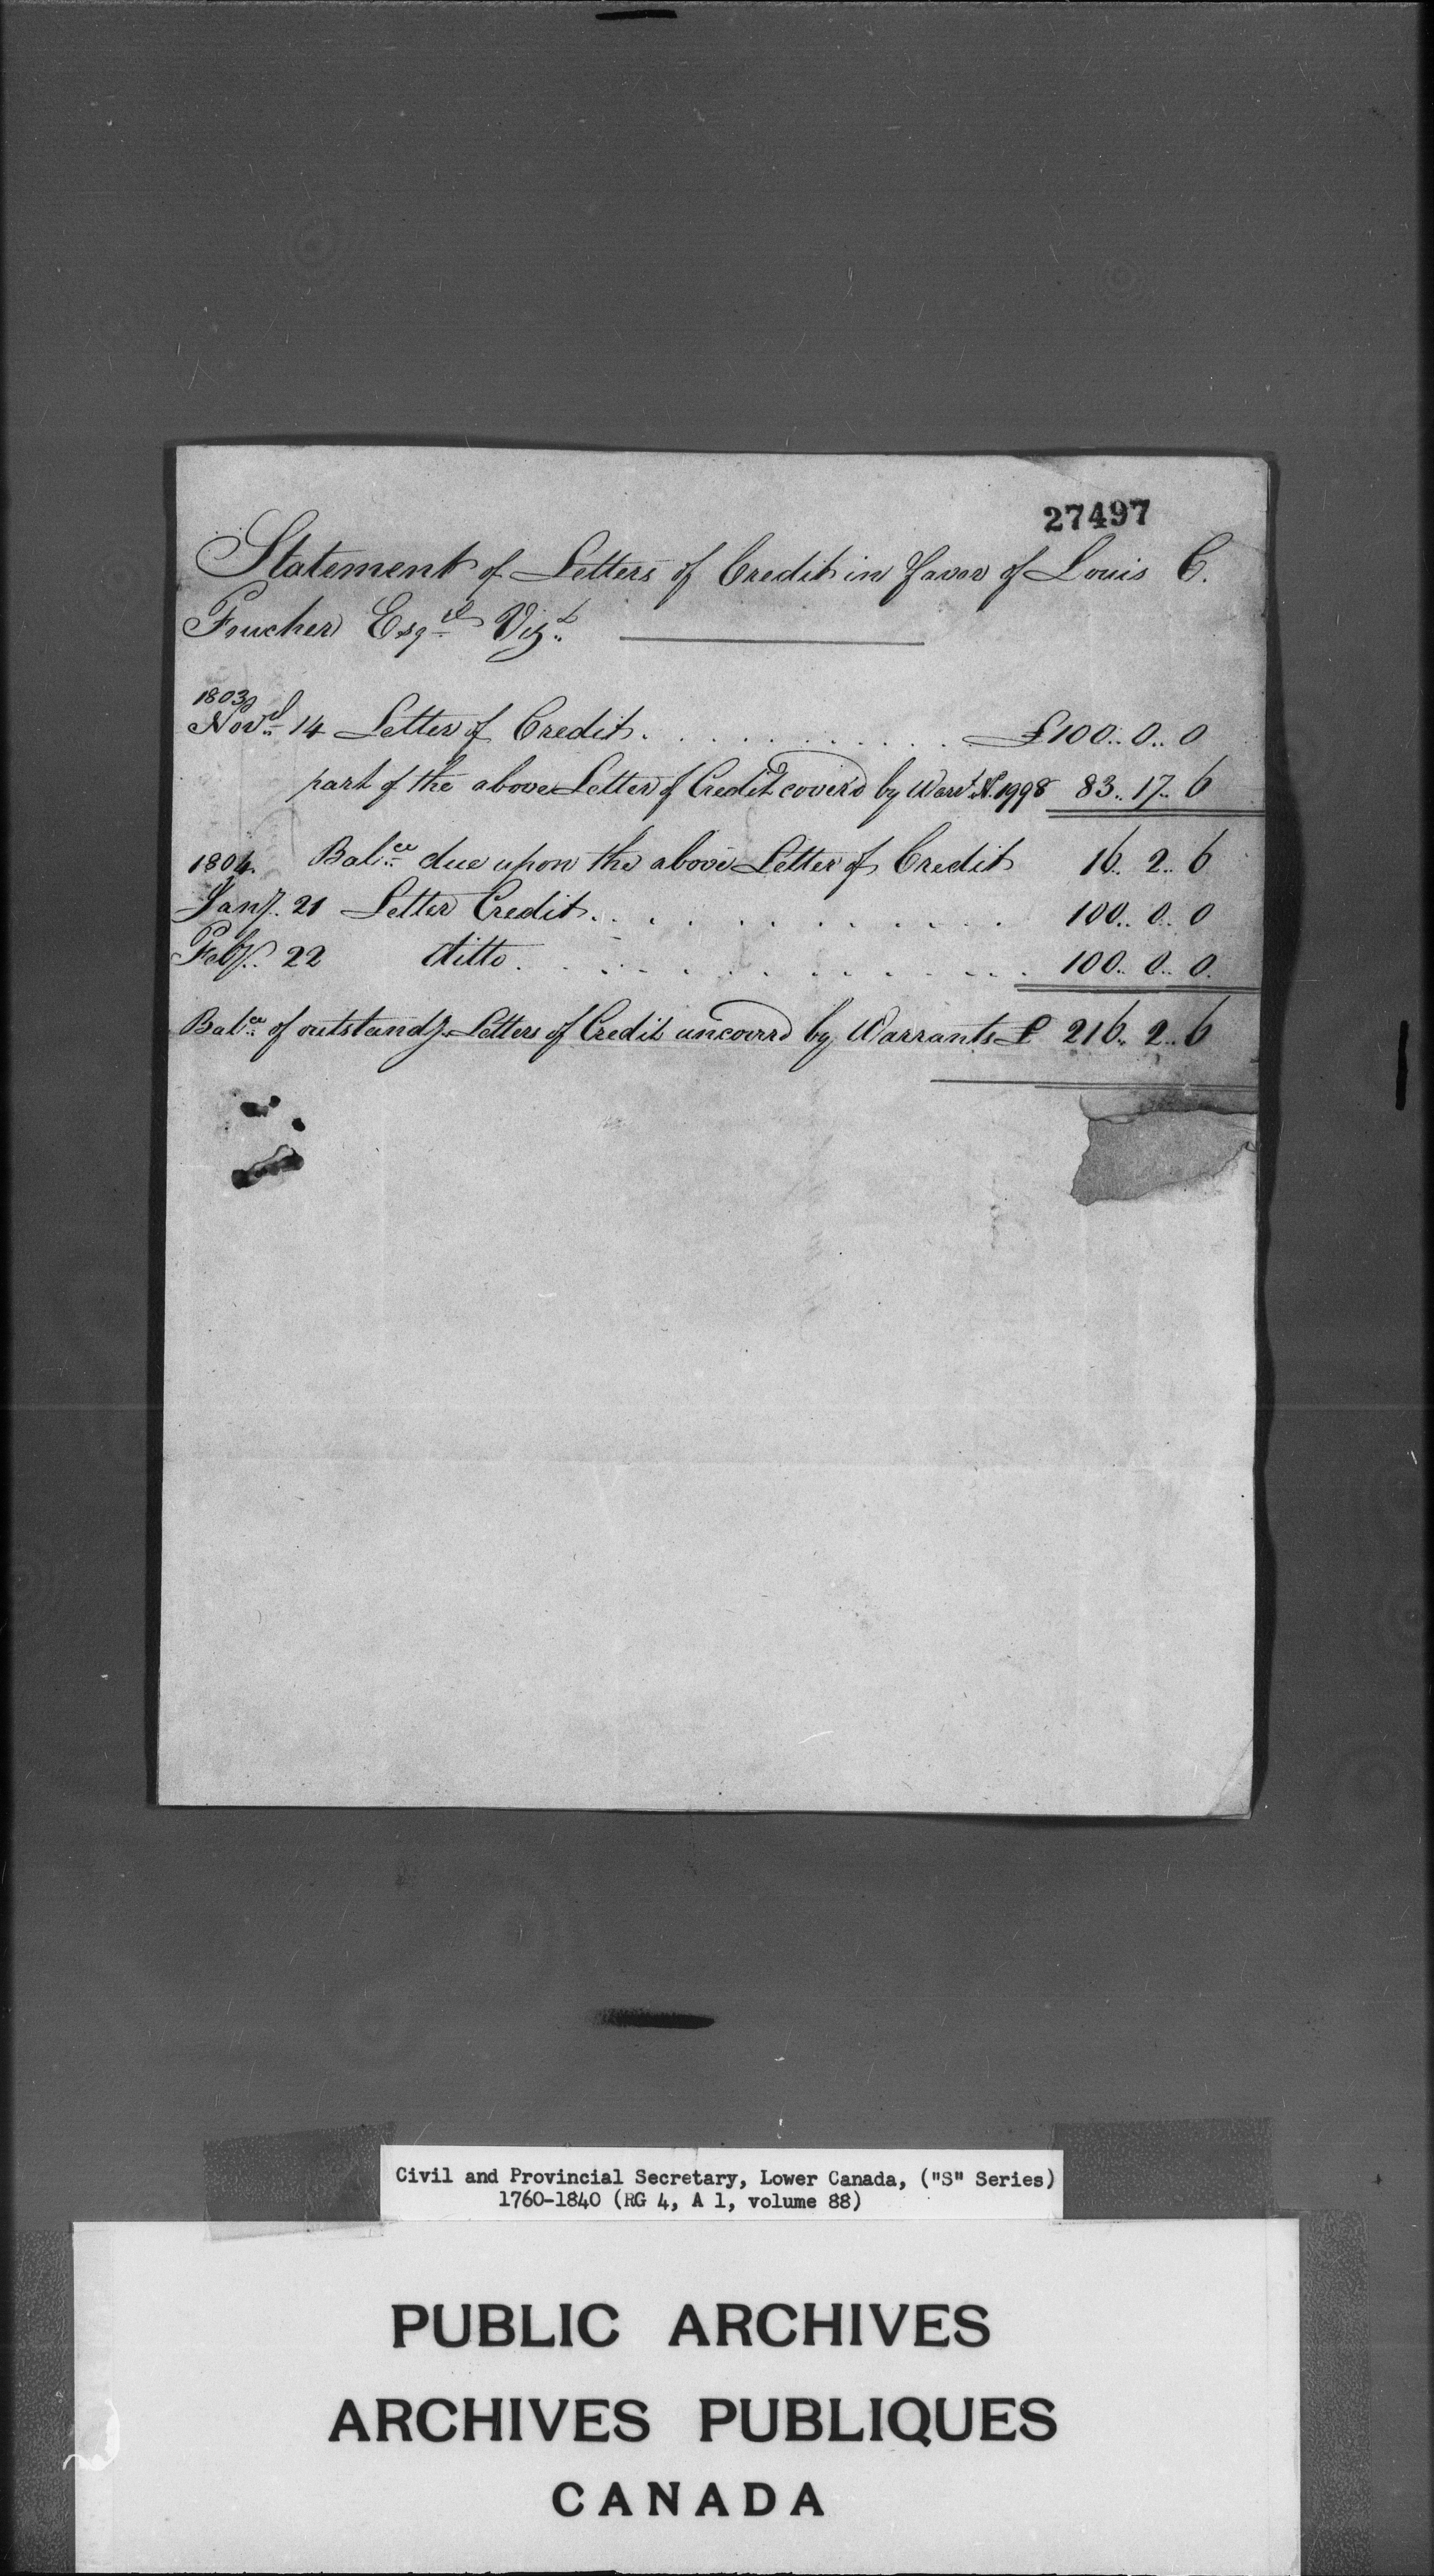 27497
Statement of Letters of Credit in favor of Louis C.
Foucher Esqr. Vizt.
1803
Novr. 14 Letter of Credit. . . . . . . . . . £100.. 0.. 0
part of the above Letter of Credit cover'd by Warrt. No. 1998 83.. 17.. 6
Balce. due upon the above Letter of Credit 16.. 2.. 6
1804.
Jany. 21 Letter Credit. . . . . . . . . . . 100.. 0.. 0
Feby. 22 ditto. . . . . . . . . . . . . 100.. 0.. 0.
Balce. of outstandg. Letters of Credit uncoverd by Warrants £ 216.. 2.. 6
Civil and Provincial Secretary, Lower Canada, ("S" Series)
1760-1840 (RG 4, A 1, volume 88)
PUBLIC ARCHIVES
ARCHIVES PUBLIQUES
CANADA